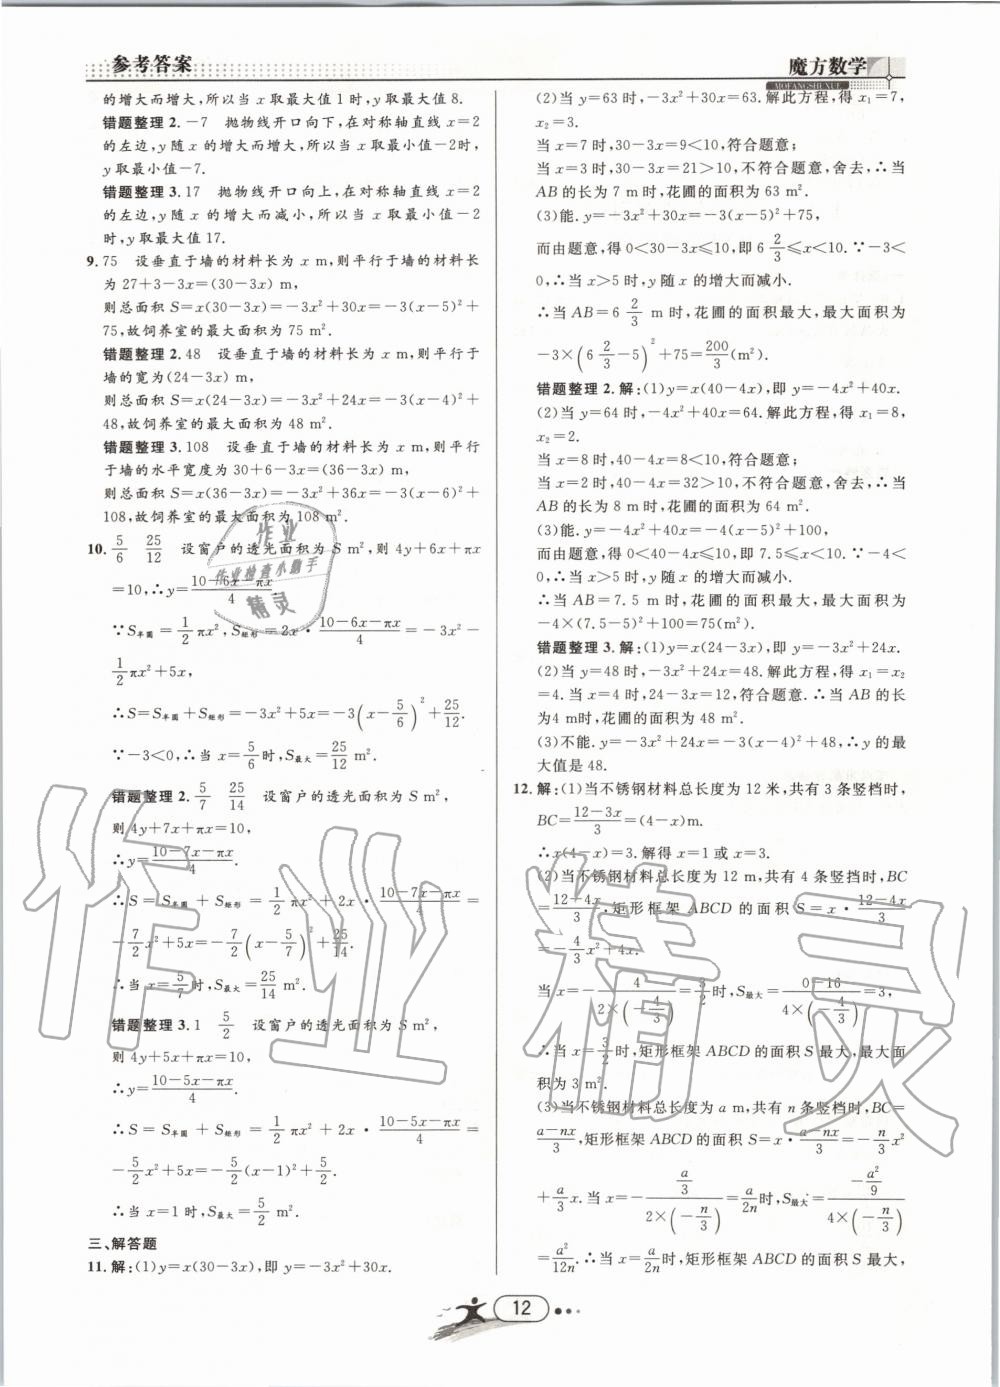 参考答案
魔方数学
MOFANGSHUXUE
的增大而增大,所以当 x 取最大值 1 时,y 取最大值 8.
错题整理 2. −7 抛物线开口向下,在对称轴直线 x=2
的左边,y 随 x 的增大而增大,所以当 x 取最小值−2时,
y 取最小值−7.
错题整理 3. 17 抛物线开口向上,在对称轴直线 x=2
的左边,y 随 x 的增大而减小,所以当 x 取最小值−2
时,y 取最大值 17.
9. 75 设垂直于墙的材料长为 x m,则平行于墙的材料长
为 27+3−3x=(30−3x) m,
则总面积 S=x(30−3x)=−3x²+30x=−3(x−5)²+
75,故饲养室的最大面积为 75 m².
错题整理 2. 48 设垂直于墙的材料长为 x m,则平行于
墙的宽为(24−3x) m,
则总面积 S=x(24−3x)=−3x²+24x=−3(x−4)²+
48,故饲养室的最大面积为 48 m².
错题整理 3. 108 设垂直于墙的材料长为 x m,则平行
于墙的水平宽度为 30+6−3x=(36−3x) m,
则总面积 S=x(36−3x)=−3x²+36x=−3(x−6)²+
108,故饲养室的最大面积为 108 m².
10. 5/6 25/12 设窗户的透光面积为 S m²,则 4y+6x+πx
=10,∴y=(10−6x−πx)/4.
∵S半圆=1/2 πx²,S矩形=2x·(10−6x−πx)/4=−3x²−
1/2 πx²+5x,
∴S=S半圆+S矩形=−3x²+5x=−3(x−5/6)²+25/12.
∵−3<0,∴当 x=5/6 时,S最大=25/12 m².
错题整理 2. 5/7 25/14 设窗户的透光面积为 S m²,
则 4y+7x+πx=10,
∴y=(10−7x−πx)/4.
∴S=S半圆+S矩形=1/2 πx²+2x·(10−7x−πx)/4=
−7/2 x²+5x=−7/2(x−5/7)²+25/14.
∴当 x=5/7 时,S最大=25/14 m².
错题整理 3. 1 5/2 设窗户的透光面积为 S m²,
则 4y+5x+πx=10,
∴y=(10−5x−πx)/4.
∴S=S半圆+S矩形=1/2 πx²+2x·(10−5x−πx)/4=
−5/2 x²+5x=−5/2(x−1)²+5/2.
∴当 x=1 时,S最大=5/2 m².
三、解答题
11. 解:(1)y=x(30−3x),即 y=−3x²+30x.
(2)当 y=63 时,−3x²+30x=63.解此方程,得 x₁=7,
x₂=3.
当 x=7 时,30−3x=9<10,符合题意;
当 x=3 时,30−3x=21>10,不符合题意,舍去,∴当
AB 的长为 7 m 时,花圃的面积为 63 m².
(3)能. y=−3x²+30x=−3(x−5)²+75,
而由题意,得 0<30−3x≤10,即 6 2/3≤x<10.∵−3<
0,∴当 x>5 时,y 随 x 的增大而减小.
∴当 AB=6 2/3 m 时,花圃的面积最大,最大面积为
−3×(6 2/3−5)²+75=200/3(m²).
错题整理 2. 解:(1)y=x(40−4x),即 y=−4x²+40x.
(2)当 y=64 时,−4x²+40x=64.解此方程,得 x₁=8,
x₂=2.
当 x=8 时,40−4x=8<10,符合题意;
当 x=2 时,40−4x=32>10,不符合题意,舍去,∴当
AB 的长为 8 m 时,花圃的面积为 64 m².
(3)能. y=−4x²+40x=−4(x−5)²+100,
而由题意,得 0<40−4x≤10,即 7.5≤x<10.∵−4<
0,∴当 x>5 时,y 随 x 的增大而减小.
∴当 AB=7.5 m 时,花圃的面积最大,最大面积为
−4×(7.5−5)²+100=75(m²).
错题整理 3. 解:(1)y=x(24−3x),即 y=−3x²+24x.
(2)当 y=48 时,−3x²+24x=48.解此方程,得 x₁=x₂
=4.当 x=4 时,24−3x=12,符合题意.∴当 AB 的长
为4 m时,花圃的面积为 48 m².
(3)不能. y=−3x²+24x=−3(x−4)²+48,∴y 的最
大值是 48.
12. 解:(1)当不锈钢材料总长度为 12 米,共有 3 条竖档时,
BC=(12−3x)/3=(4−x)m.
∴x(4−x)=3.解得 x=1 或 x=3.
(2)当不锈钢材料总长度为 12 m,共有 4 条竖档时,BC
=(12−4x)/3,矩形框架 ABCD 的面积 S=x·(12−4x)/3
=−4/3 x²+4x.
当 x=−4/(2×(−4/3))=3/2 时,S最大=(0−16)/(4×(−4/3))=3,
∴当 x=3/2 时,矩形框架 ABCD 的面积 S 最大,最大面
积为 3 m².
(3)当不锈钢材料总长度为 a m,共有 n 条竖档时,BC=
(a−nx)/3,矩形框架 ABCD 的面积 S=x·(a−nx)/3=−n/3 x²
+a/3 x.当 x=−(a/3)/(2×(−n/3))=a/2n 时,S最大=(−a²/9)/(4×(−n/3))
=a²/12n.∴当 x=a/2n 时,矩形框架 ABCD 的面积 S 最大,
12
作业
作业检查小助手
精灵
作业精灵